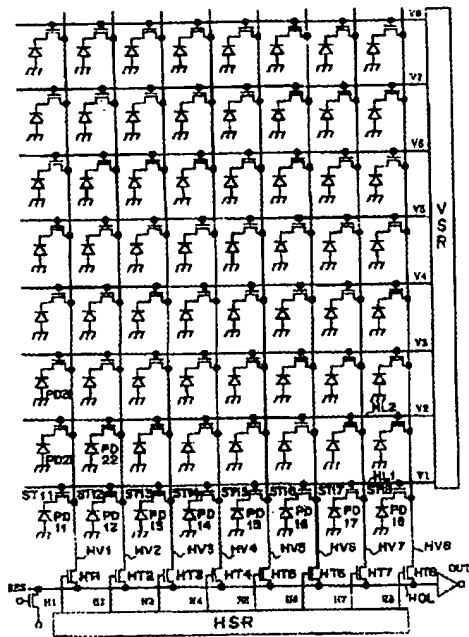 V8
V7
V6
V5
V4
V3
V2
V1
VSR
PD21
PD
22
HL2
HL1
ST11 ST12 ST13 ST14 ST15 ST16 ST17
PD
11
PD
12
PD
13
PD
14
PD
15
PD
16
PD
17
PD
18
HV1 HV2 HV3 HV4 HV5 HV6 HV7 HV8
HT2 HT3 HT4 HT5 HT7 HT8
OUT
RES
H1
H7
HOL
HSR